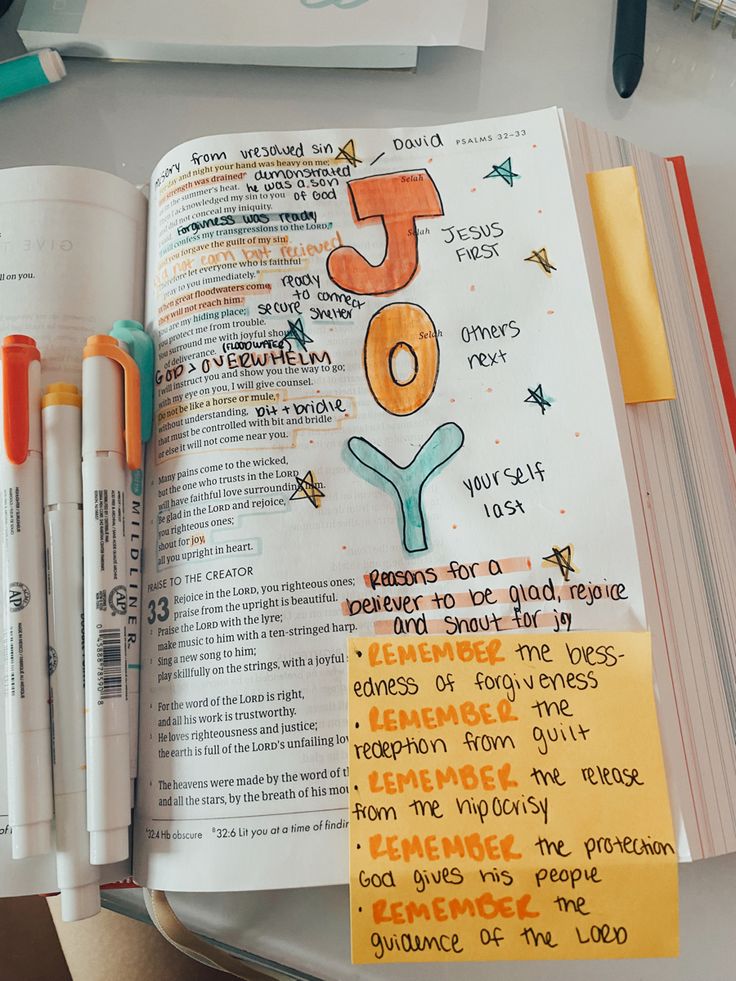 PSALMS 32–33
David
sery from uresolved sin
day and night your hand was heavy on me;
strength was drained demonstrated
in the summer's heat. he was a son
of God
I acknowledged my sin to you
did not conceal my iniquity.
Forgivness was ready
I will confess my transgressions to the LORD,
you forgave the guilt of my sin.
not earn but recieved
let everyone who is faithful
to you immediately.
ready
When great floodwaters come, to connect
they will not reach him.
You are my hiding place; secure shelter
you protect me from trouble.
You surround me with joyful shouts
of deliverance. (FLOODWATER)
GOD > OVERWHELM
I will instruct you and show you the way to go;
with my eye on you, I will give counsel.
Do not be like a horse or mule,
without understanding, bit + bridle
that must be controlled with bit and bridle
or else it will not come near you.
Many pains come to the wicked,
but the one who trusts in the LORD
will have faithful love surrounding him.
Be glad in the LORD and rejoice,
you righteous ones;
shout for joy,
all you upright in heart.
Selah
Selah
Selah
J
JESUS
FIRST
O
others
next
Y
yourself
last
PRAISE TO THE CREATOR
33 Rejoice in the LORD, you righteous ones;
praise from the upright is beautiful.
2 Praise the LORD with the lyre;
make music to him with a ten-stringed harp.
3 Sing a new song to him;
play skillfully on the strings, with a joyful
4 For the word of the LORD is right,
and all his work is trustworthy.
5 He loves righteousness and justice;
the earth is full of the LORD's unfailing lo
6 The heavens were made by the word of th
and all the stars, by the breath of his mou
A32:4 Hb obscure B32:6 Lit you at a time of findin
Reasons for a
believer to be glad, rejoice
and shout for joy
• REMEMBER the bless-
edness of forgiveness
• REMEMBER the
redeption from guilt
• REMEMBER the release
from the hipocrisy
• REMEMBER the protection
God gives his people
• REMEMBER the
guidence of the LORD
GIVE T
ll on you.
MILDLINER
AP
AP